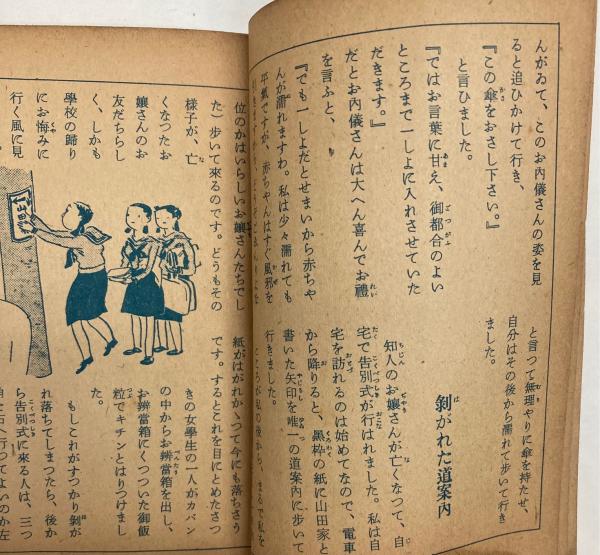 んがゐて、このお内儀さんの姿を見
ると追ひかけて行き、
『この傘をおさし下さい。』
と言ひました。
『ではお言葉に甘え、御都合のよい
ところまで一しよに入れさせていた
だきます。』
だとお内儀さんは大へん喜んでお禮
を言ふと、
『でも一しよだとせまいから赤ちゃ
んが濡れますわ。私は少々濡れても
平氣ですが、赤ちゃんはすぐ風邪を
と言つて無理やりに傘を持たせ、
自分はその後から濡れて歩いて行き
ました。
剝がれた道案内
知人のお孃さんが亡くなつて、自
宅で告別式が行はれました。私は自
宅を訪れるのは始めてなので、電車
から降りると、黒枠の紙に山田家と
書いた矢印を唯一の道案内に歩いて
行きました。
ところが私の後から、まるで私を
位のかはいらしいお孃さんたちでし
た）歩いて來るのです。どうもその
樣子が、亡
くなつたお
孃さんのお
友だちらし
く、しかも
學校の歸り
にお悔みに
行く風に見
山田
紙がはがれかゝつて今にも落ちさう
です。するとそれを目にとめたさつ
きの女學生の一人がカバン
の中からお辨當箱を出し、
お辨當箱にくつついた御飯
粒でキチンとはりつけまし
た。
もしこれがすつかり剝が
れ落ちてしまつたら、後か
ら告別式に來る人は、三つ